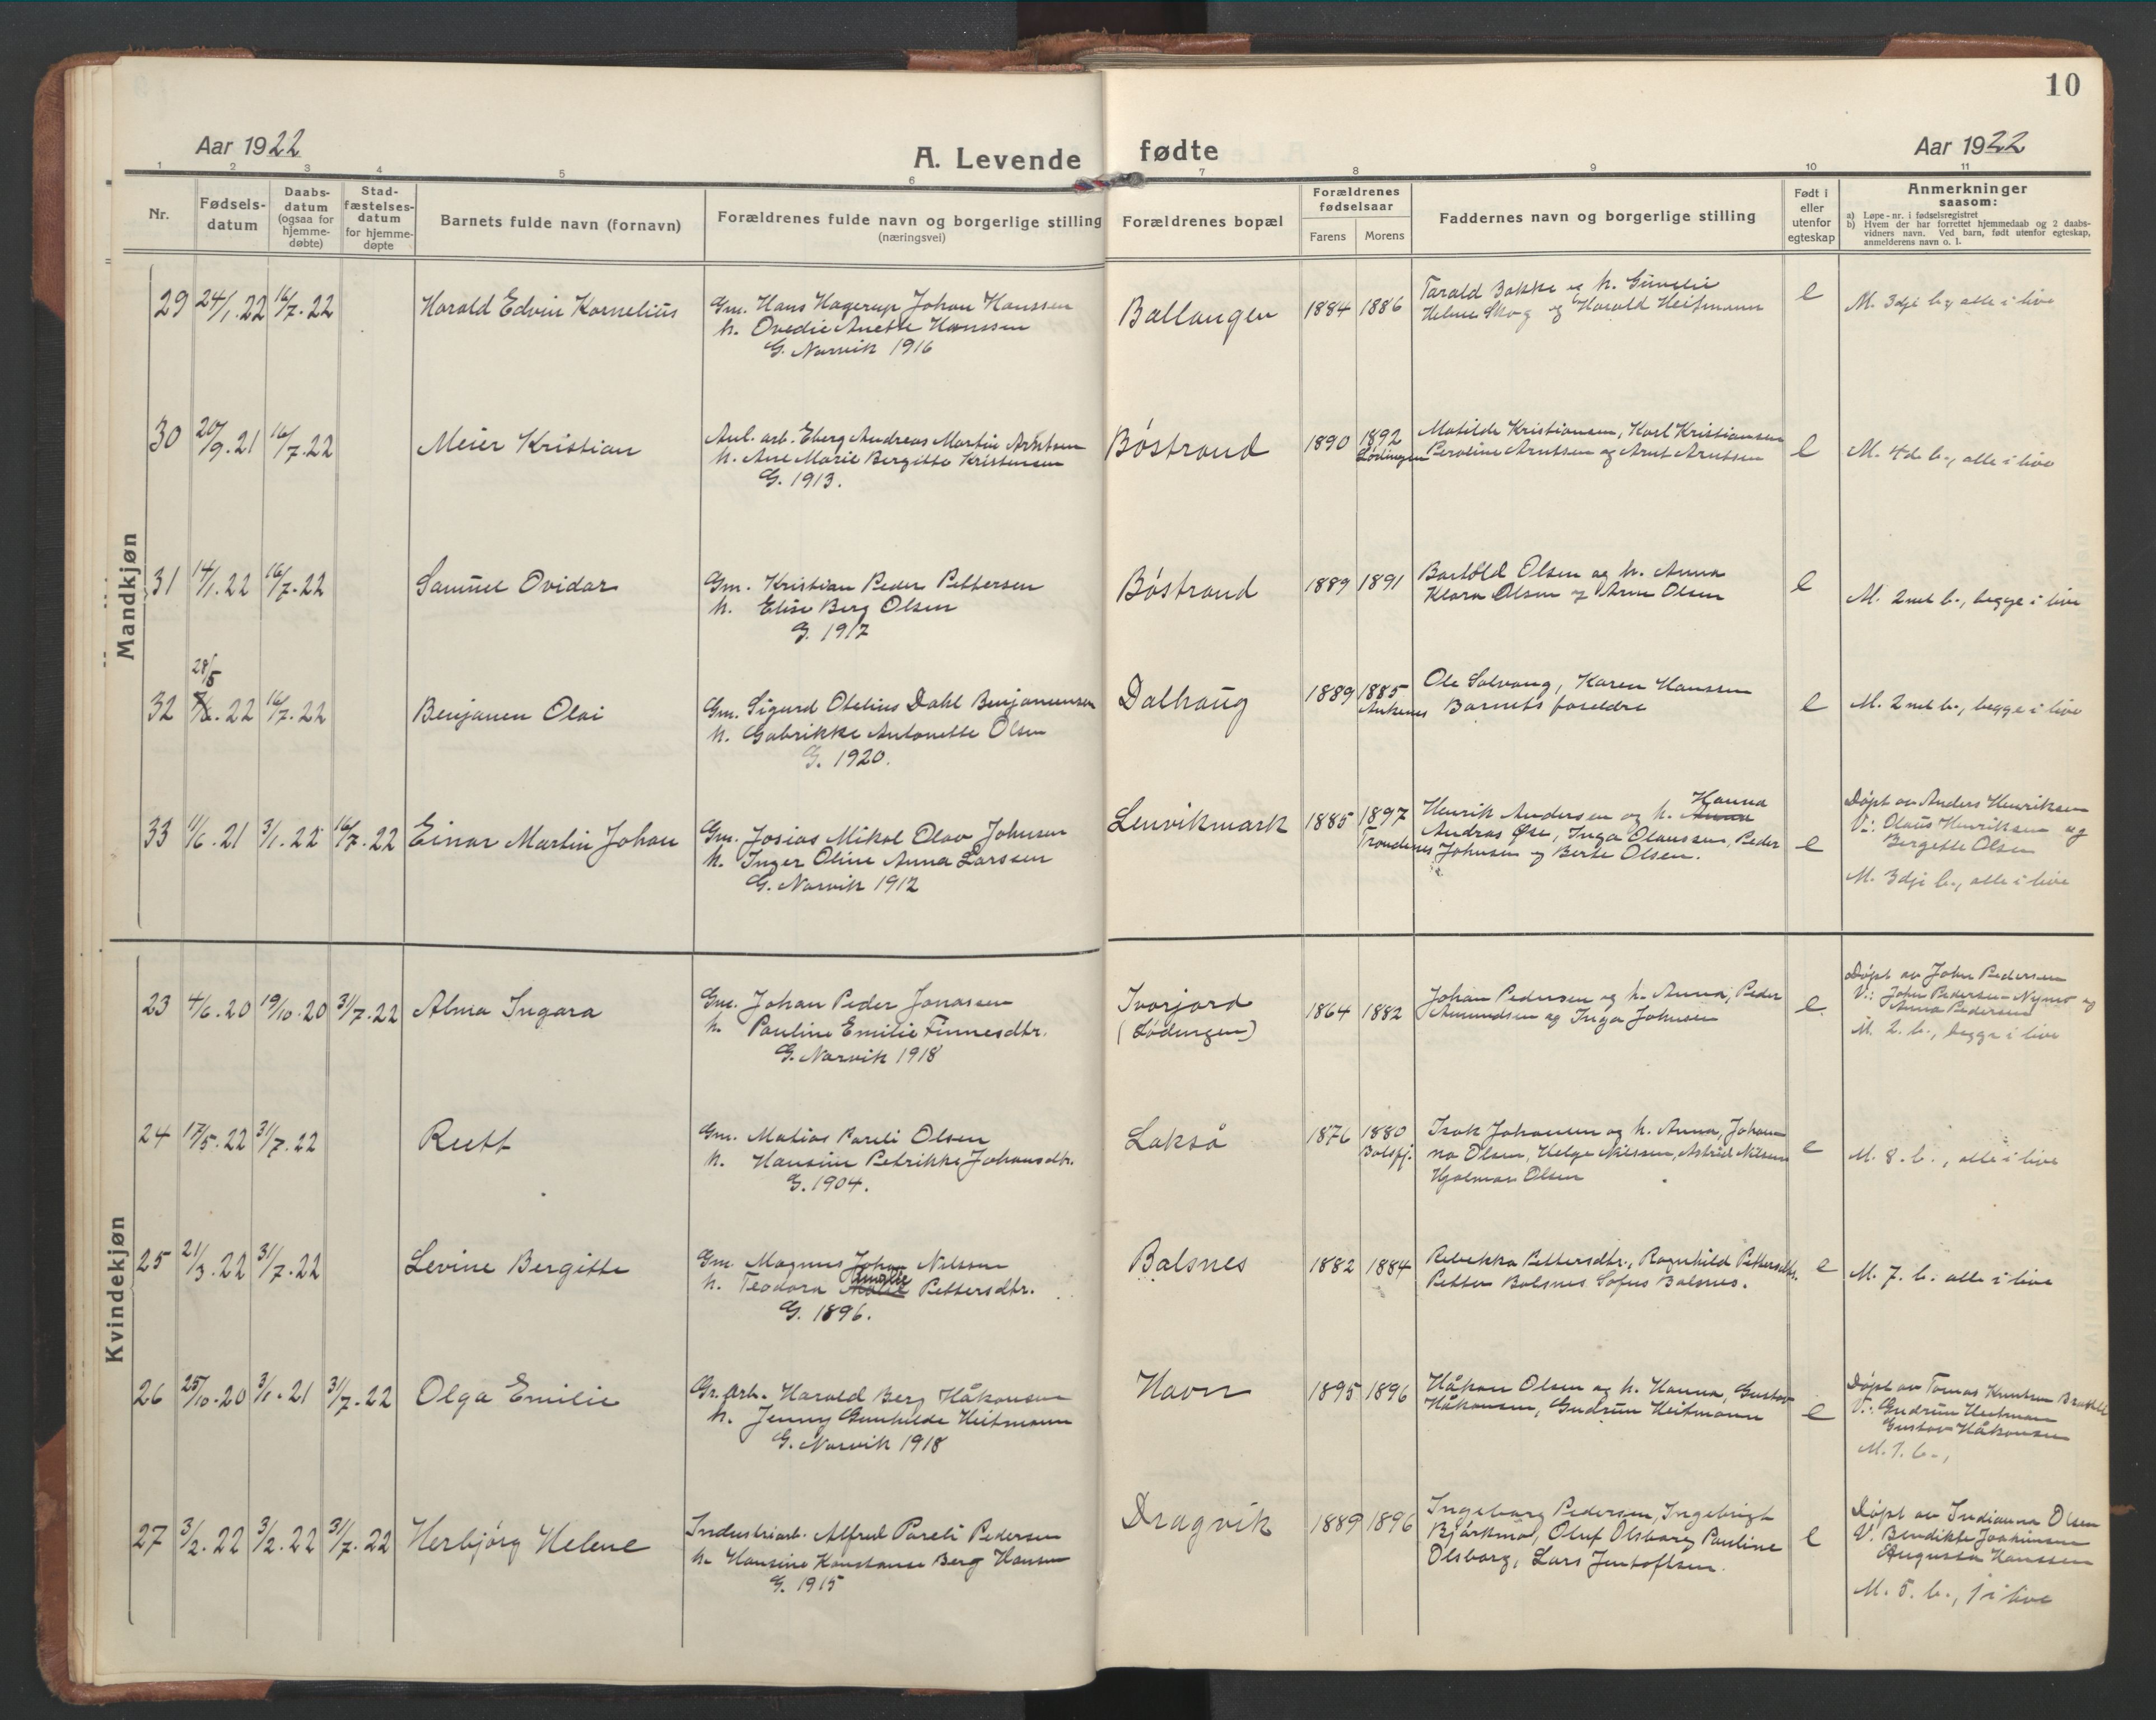 10
Aar 1922
A. Levende fødte
Aar 1922
1 2 3 4 5 6 7 8 9 10 11
Nr.
Fødselsdatum
Daabsdatum (ogsaa for hjemmedøbte)
Stadfæstelsesdatum for hjemmedøpte
Barnets fulde navn (fornavn)
Forældrenes fulde navn og borgerlige stilling
(næringsvei)
Forældrenes bopæl
Forældrenes fødselsaar
Farens Morens
Faddernes navn og borgerlige stilling
Født i eller utenfor egteskap
Anmerkninger
saasom:
a) Løpe-nr. i fødselsregistret
b) Hvem der har forrettet hjemmedaab og 2 daabsvidners navn. Ved barn, født utenfor egteskap, anmelderens navn o. l.
Mandkjøn
29 24/1.22 16/7.22 Harald Edvin Kornelius
Gm. Hans Hagerup Johan Hanssen
h. Ovedie Anette Hanssen
G. Narvik 1916
Ballangen 1884 1886
Tarald Bakke og h.
Helene Skog og Harald Heitmann
e
M. 3dje b., alle i live
30 20/9.21 16/7.22 Meier Kristian
Anl. arb. Eberg Andreas Martin Arntsen
h. Ane Marie Bergitte Kristensen
G. 1913.
Bøstrand 1890 1892 Lødingen
Matilde Kristiansen, Karl Kristiansen
Peroline Arntsen og Arnt Arntsen
e
M. 4de b., alle i live
31 14/1.22 16/7.22 Samuel Ovidar
Gm. Kristian Peder Pettersen
h. Elise Berg Olsen
G. 1917
Bøstrand 1889 1891
Bartold Olsen og h. Anna
Klara Olsen og Arne Olsen
e
M. 2net b., begge i live
28/5
32 22 16/7.22 Benjamen Olai
Gm. Sigurd Otelius Dahl Benjamensen
h. Gabrikke Antonette Olsen
G. 1920.
Dalhaug 1889 1885 Ankenes
Ole Solvang, Karen Hanssen
Barnets foreldre
e
M. 2net b., begge i live
33 11/6.21 3/1.22 16/7.22 Einar Martin Johan
Gm. Josias Mikal Olav Johnsen
h. Inger Oline Anna Larssen
G. Narvik 1912
Lenvikmark 1885 1897 Trondenes
Hanna
Henrik Andersen og h. Anna
Andras Øse, Inga Olaussen, Peder
Johnsen og Berte Olsen.
e
Døpt av Anders Henriksen
V.: Olaus Henriksen og
Bergette Olsen
M. 3dje b., alle i live
Kvindekjøn
23 4/6.20 19/10.20 31/7.22 Alma Ingara
Gm. Johan Peder Jonassen
h. Pauline Emilie Finnesdtr.
G. Narvik 1918
Ivarjord
(Lødingen)
1864 1882
Johan Pedersen og h. Anna, Peder
Amundsen og Inga Johnsen
e
Døpt av John Pedersen
V.: John Pedersen-Nymo og
Anna Pedersen
M. 2. b., begge i live
24 17/5.22 31/7.22 Rutt
Gm. Matias Pareli Olsen
h. Hansine Petrikke Johansdtr.
G. 1904.
Lakså 1876 1880 Balsfj.
Isak Johansen og h. Anna, Johan-
na Olsen, Helge Nilssen, Astrid Nilssen
Hjalmar Olsen
e
M. 8. b., alle i live
25 21/3.22 31/7.22 Levine Bergitte
Gm. Magnus Johan Nilssen
Amalie
h. Teodora Pettersdtr.
G. 1896.
Balsnes 1882 1884
Rebekka Pettersdtr., Ragnhild Pettersdtr.
Petter Balsnes Sofus Balsnes.
e
M. 7. b. alle i live
26 25/10.20 3/1.21 31/7.22 Olga Emilie
Gr. arb. Harald Berg Håkonsen
h. Jenny Gunhilde Heitmann
G. Narvik 1918
Havn 1895 1896
Håkon Olsen og h. Hanna, Gustav
Håkonsen, Gudrun Heitmann
e
Døpt av Tomas Knutsen
V.: Gudrun Heitmann
Gustav Håkonsen
M. 1. b.,
27 3/2.22 3/2.22 31/7.22 Herbjørg Helene
Industriarb. Alfred Pareli Pedersen
h. Hansine Konstanse Berg Hansen
G. 1915
Dragvik 1889 1896
Ingeborg Pedersen, Ingebrigt
Bjørkmo, Oluf Olsborg Pauline
Olsborg, Lars Jentoftsen.
e
Døpt av Indianna Olsen
V. Bendikte Joakimsen
Augusta Hanssen
M. 5. b., 1 i live